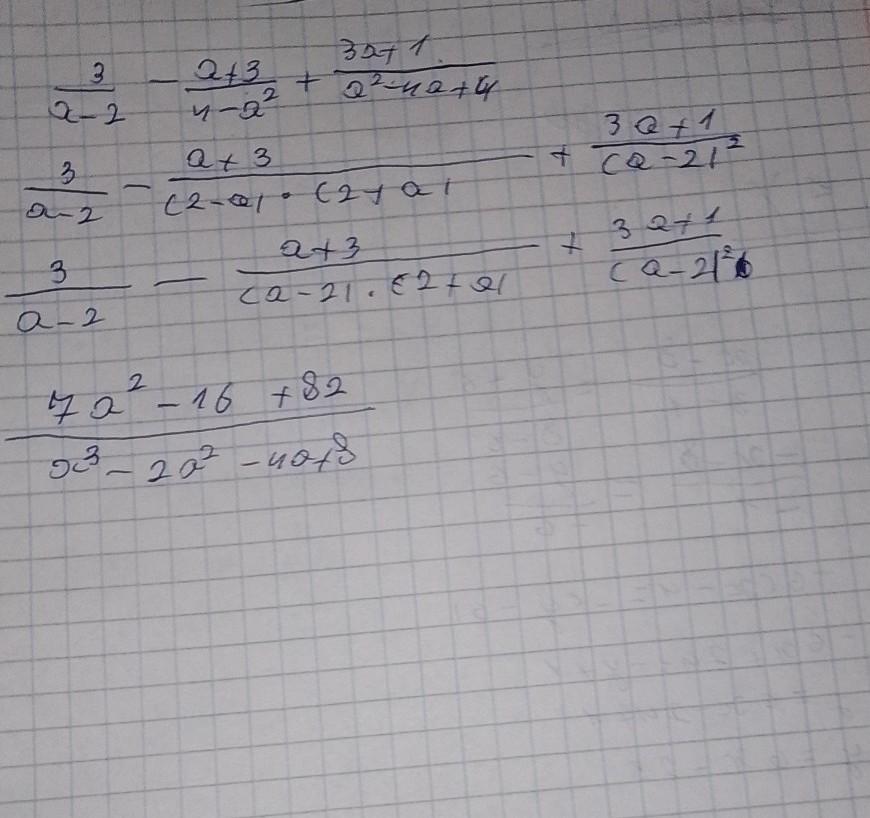 3/(a-2) - (a+3)/(4-a²) + (3a+1)/(a²-4a+4)
3/(a-2) - (a+3)/((2-a)·(2+a)) + (3a+1)/(a-2)²
3/(a-2) - (a+3)/((a-2)·(2+a)) + (3a+1)/(a-2)²
(7a²-16+82)/(a³-2a²-4a+8)